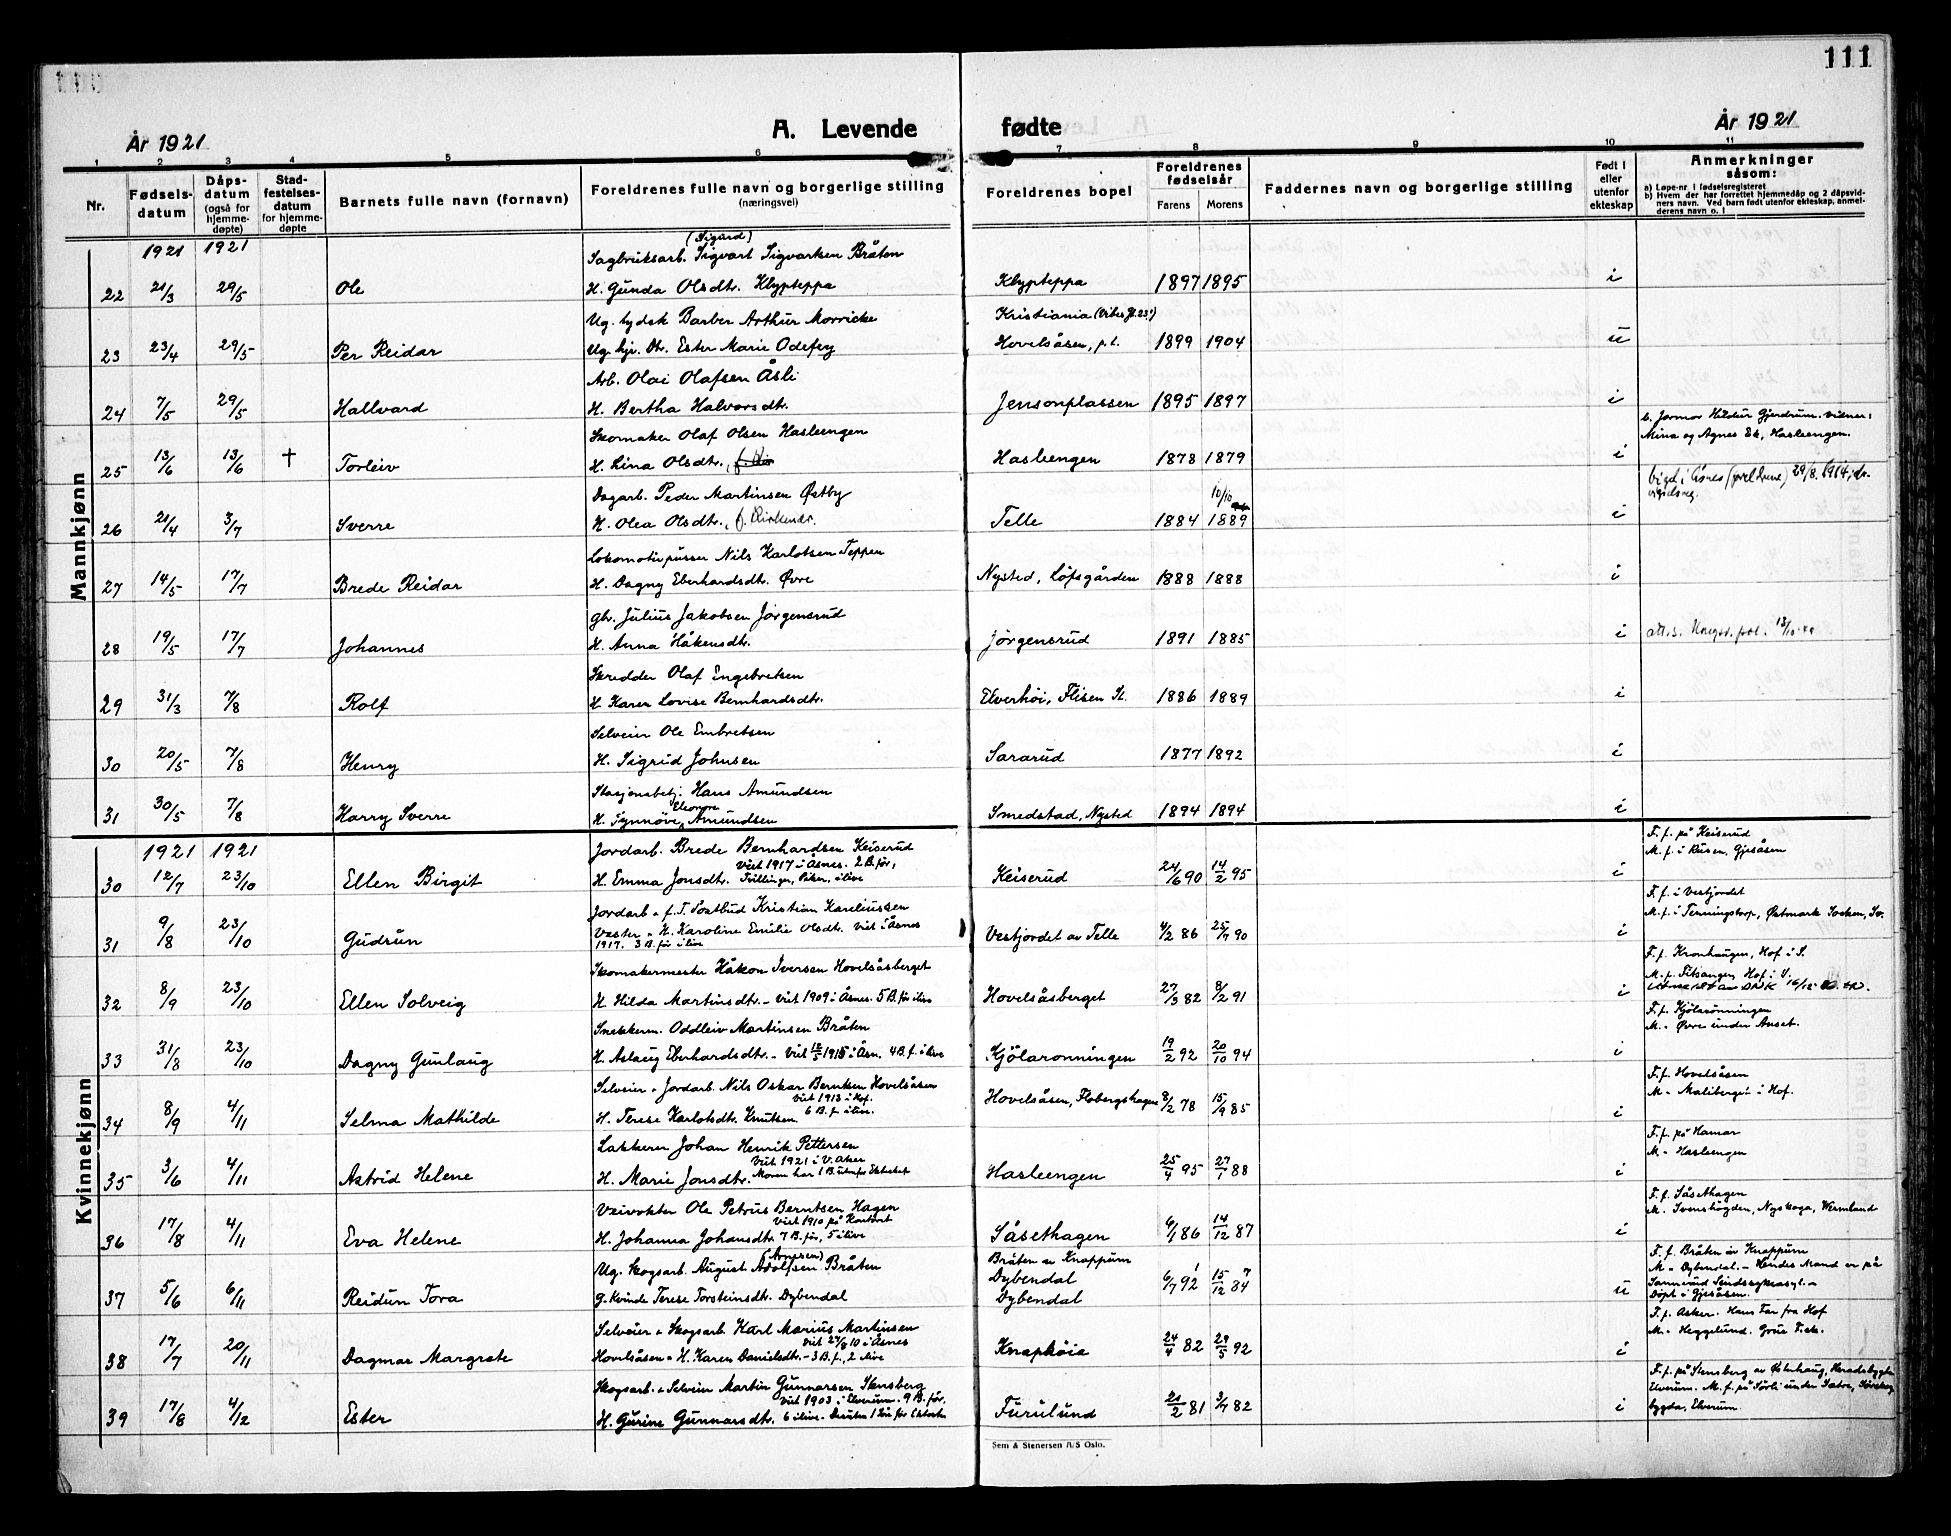 111
År 1921
A. Levende fødte
År 1921
1 2 3 4 5 6 7 8 9 10 11
Nr.
Fødsels-
datum
Dåps-
datum
(også for
hjemme-
døpte)
Stad-
festelses-
datum
for hjemme-
døpte
Barnets fulle navn (fornavn)
Foreldrenes fulle navn og borgerlige stilling
(næringsvei)
Foreldrenes bopel
Foreldrenes
fødselsår
Farens Morens
Faddernes navn og borgerlige stilling
Født i
eller
utenfor
ekteskap
Anmerkninger
såsom:
a) Løpe-nr. i fødselsregisteret
b) Hvem der har forrettet hjemmedåp og 2 dåpsvid-
ners navn. Ved barn født utenfor ekteskap, anmel-
derens navn o. l.
Mannkjønn
1921 1921
(Sigurd)
Sagbruksarb. Sigvart Sigvartsen Bråten
22 21/3 29/5 Ole H. Gunda Olsdtr. Klypteppa Klypteppa 1897 1895 i
Ug. tydsk Barber Arthur Morricke Kristiania (Vibes Gt. 23)
23 23/4 29/5 Per Reidar Ug. hjv. Dtr. Ester Marie Odefey Hovelsåsen, p.t. 1899 1904 u
Arb. Olai Olafsen Åsli
24 7/5 29/5 Hallvard H. Bertha Halvorsdtr. Jensonplassen 1895 1897 i
Skomaker Olaf Olsen Hasleengen
b. Jormor Hildur Gjerdrum. vidner:
Mina og Agnes Ek, Hasleengen.
25 13/6 13/6 † Torleiv H. Lina Olsdtr. Hasleengen 1878 1879 i
Dagarb. Peder Martinsen Østby 10/10
26 21/4 3/7 Sverre H. Olea Olsdtr., f. Kirkenær. Telle 1884 1889 i
Lokomotivpusser Nils Karlotsen Teppen
27 14/5 17/7 Brede Reidar H. Dagny Eberhardsdtr. Øvre Nysted, Löfsgården 1888 1888 i
Gbr. Julius Jakobsen Jörgensrud
28 19/5 17/7 Johannes H. Anna Håkensdtr. Jörgensrud 1891 1885 i
Skredder Olaf Engebretsen
29 31/3 7/8 Rolf H. Karen Lovise Bernhardsdtr. Elverhöi, Flisen St. 1886 1889 i
Selveier Ole Embretsen
30 20/5 7/8 Henry H. Sigrid Johnsen Sararud 1877 1892 i
Stasjonsbetj. Hans Amundsen
31 30/5 7/8 Harry Sverre H. Synnöve Eleonore Amundsen Smedstad, Nysted 1894 1894 i
Kvinnekjønn
1921 1921
Jordarb. Brede Bernhardsen Keiserud
F. f. på Keiserud
M. f. i Rusen, Gjesåsen
Viet 1917 i Åsnes. 2 B. för,
30 12/7 23/10 Ellen Birgit H. Emma Jonsdtr. Tvillinger, Piker, i live Keiserud 24/6 90 14/2 95 i
Jordarb. - f. T. Postbud Kristian Kareliussen
F. f. i Vestjordet
M. f. i Tenningstorp, Östmark Socken, Sv.
31 9/8 23/10 Gudrun Vester - H. Karoline Emilie Olsdtr. Viet i Åsnes
1917. 3 B. för i live Vestjordet av Telle 4/2 86 25/7 90 i
Skomakermester Håkon Iversen Hovelsåsberget
F. f. Kronhaugen, Hof i S.
M. f. Fitsangen, Hof i S.
32 8/9 23/10 Ellen Solveig H. Hilda Martinsdtr. - Viet 1909 i Åsnes. 5 B. för i live Hovelsåsberget 27/3 82 8/2 91 i
Snekkerm. Oddleiv Martinsen Bråten
F. f. Kjölaronningen
M. - Övre under Anset.
33 31/8 23/10 Dagny Gunlaug H. Aslaug Eberhardsdtr. - Viet 12/5 1915 i Åsn. 4 B. f. i live Kjölaronningen 19/2 92 20/10 94 i
Selveier - Jordarb. Nils Oskar Berntsen Hovelsåsen
F. f. Hovelsåsen
M. - Maliberget i Hof.
Viet 1913 i Hof.
6 B. f. i live.
34 8/9 4/11 Selma Mathilde H. Terese Karlotsdtr. Knutsen Hovelsåsen, Flobergshagen 8/2 78 15/9 85 i
Lakkerer Johan Henrik Pettersen
F. f. på Hamar
M. - Hasleengen
Viet 1921 i V. Aker
35 3/6 4/11 Astrid Helene H. Marie Jonsdtr. Moren har 1 B. utenfor Ekteskap Hasleengen 25/4 95 27/1 88 i
Veivokter Ole Petrus Berntsen Hagen
F. f. Såsethagen
M. Svenshögden, Nyskoga, Wermland
Viet 1910 på Kontoret
36 17/8 4/11 Eva Helene H. Johanna Johansdtr. 7 B. för, 5 i live Såsethagen 6/1 86 14/12 87 i
(Arnesen)
Ug. Skogsarb. August Adolfsen Bråten Bråten av Knappum
F. f. Bråten av Knappum
M. - Dybendal. - Hendes Mand er på
Sannerud Sindssykeasyl. -
Döpt i Gjesåsen.
37 5/6 6/11 Reidun Tora G. Kvinde Terese Torsteinsdtr. Dybendal Dybendal
Dybendal 6/7 92 15/12 84 u
Selveier - Skogsarb. Karl Marius Martinsen
F. f. Asker. Hans Far fra Hof
M. - Heggelund. Grue Finsk.
38 17/7 20/11 Dagmar Margrete Hovelsåsen - H. Karen Danielsdtr. - 3 B. f., 2 i live Knaphöia 24/4 82 29/5 92 i
Skogsarb. - Selveier Martin Gunnarsen Stensberg
Viet 1903 i Elverum. 9 B. för.
39 17/8 4/12 Ester H. Gurine Gunnarsdtr. 6 i live. Furulund 21/2 81 3/7 82 i
F. f. på Stensberg av Österhaug, Heradsbygda
Elverum. M. f. på Sörli under Sætre, Sörskog-
bygda, Elverum
Sem & Stenersen A/S Oslo.